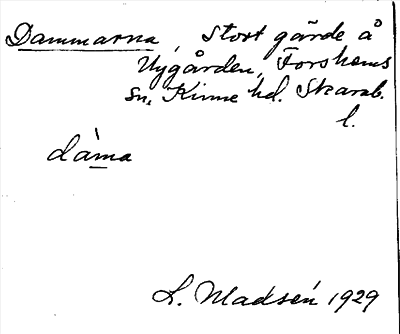 Dammarna, Stort gärde å
Nygården, Forshems
sn, Kinne hd. Skarab.
l.
dàma
L. Madsén 1929